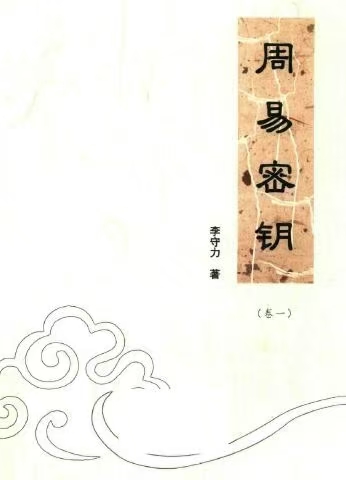 周易密钥
李守力 著
（卷一）